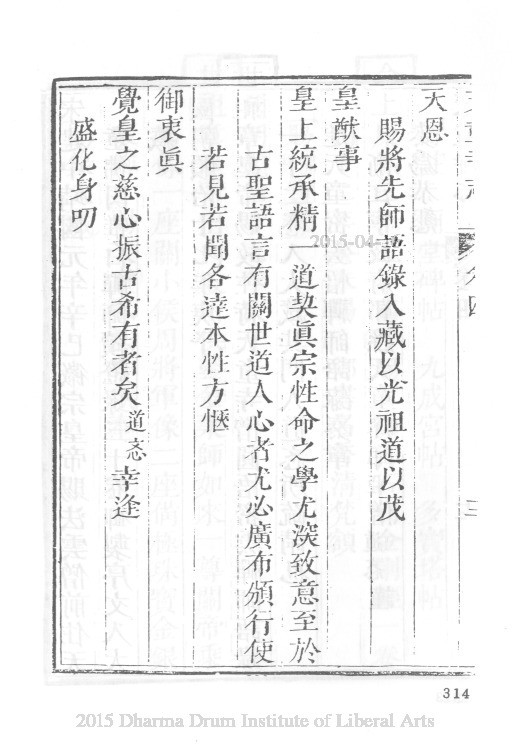 天恩
賜將先師語錄入藏以光祖道以茂
皇猷事
皇上統承精一道契眞宗性命之學尤深致意至於
古聖語言有關世道人心者尤必廣布頒行使
若見若聞各達本性方愜
御衷眞
覺皇之慈心振古希有者矣道忞幸逢
盛化身叨
三
314
2015-04-
2015 Dharma Drum Institute of Liberal Arts